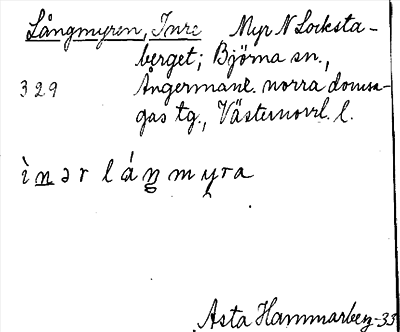 Långmyren, Inre Myr N Locksta-
berget; Björna sn.,
329 Ångermanl. norra domsa-
gas tg., Västernorrl. l.
ìnər låŋmyra
Asta Hammarberg-33